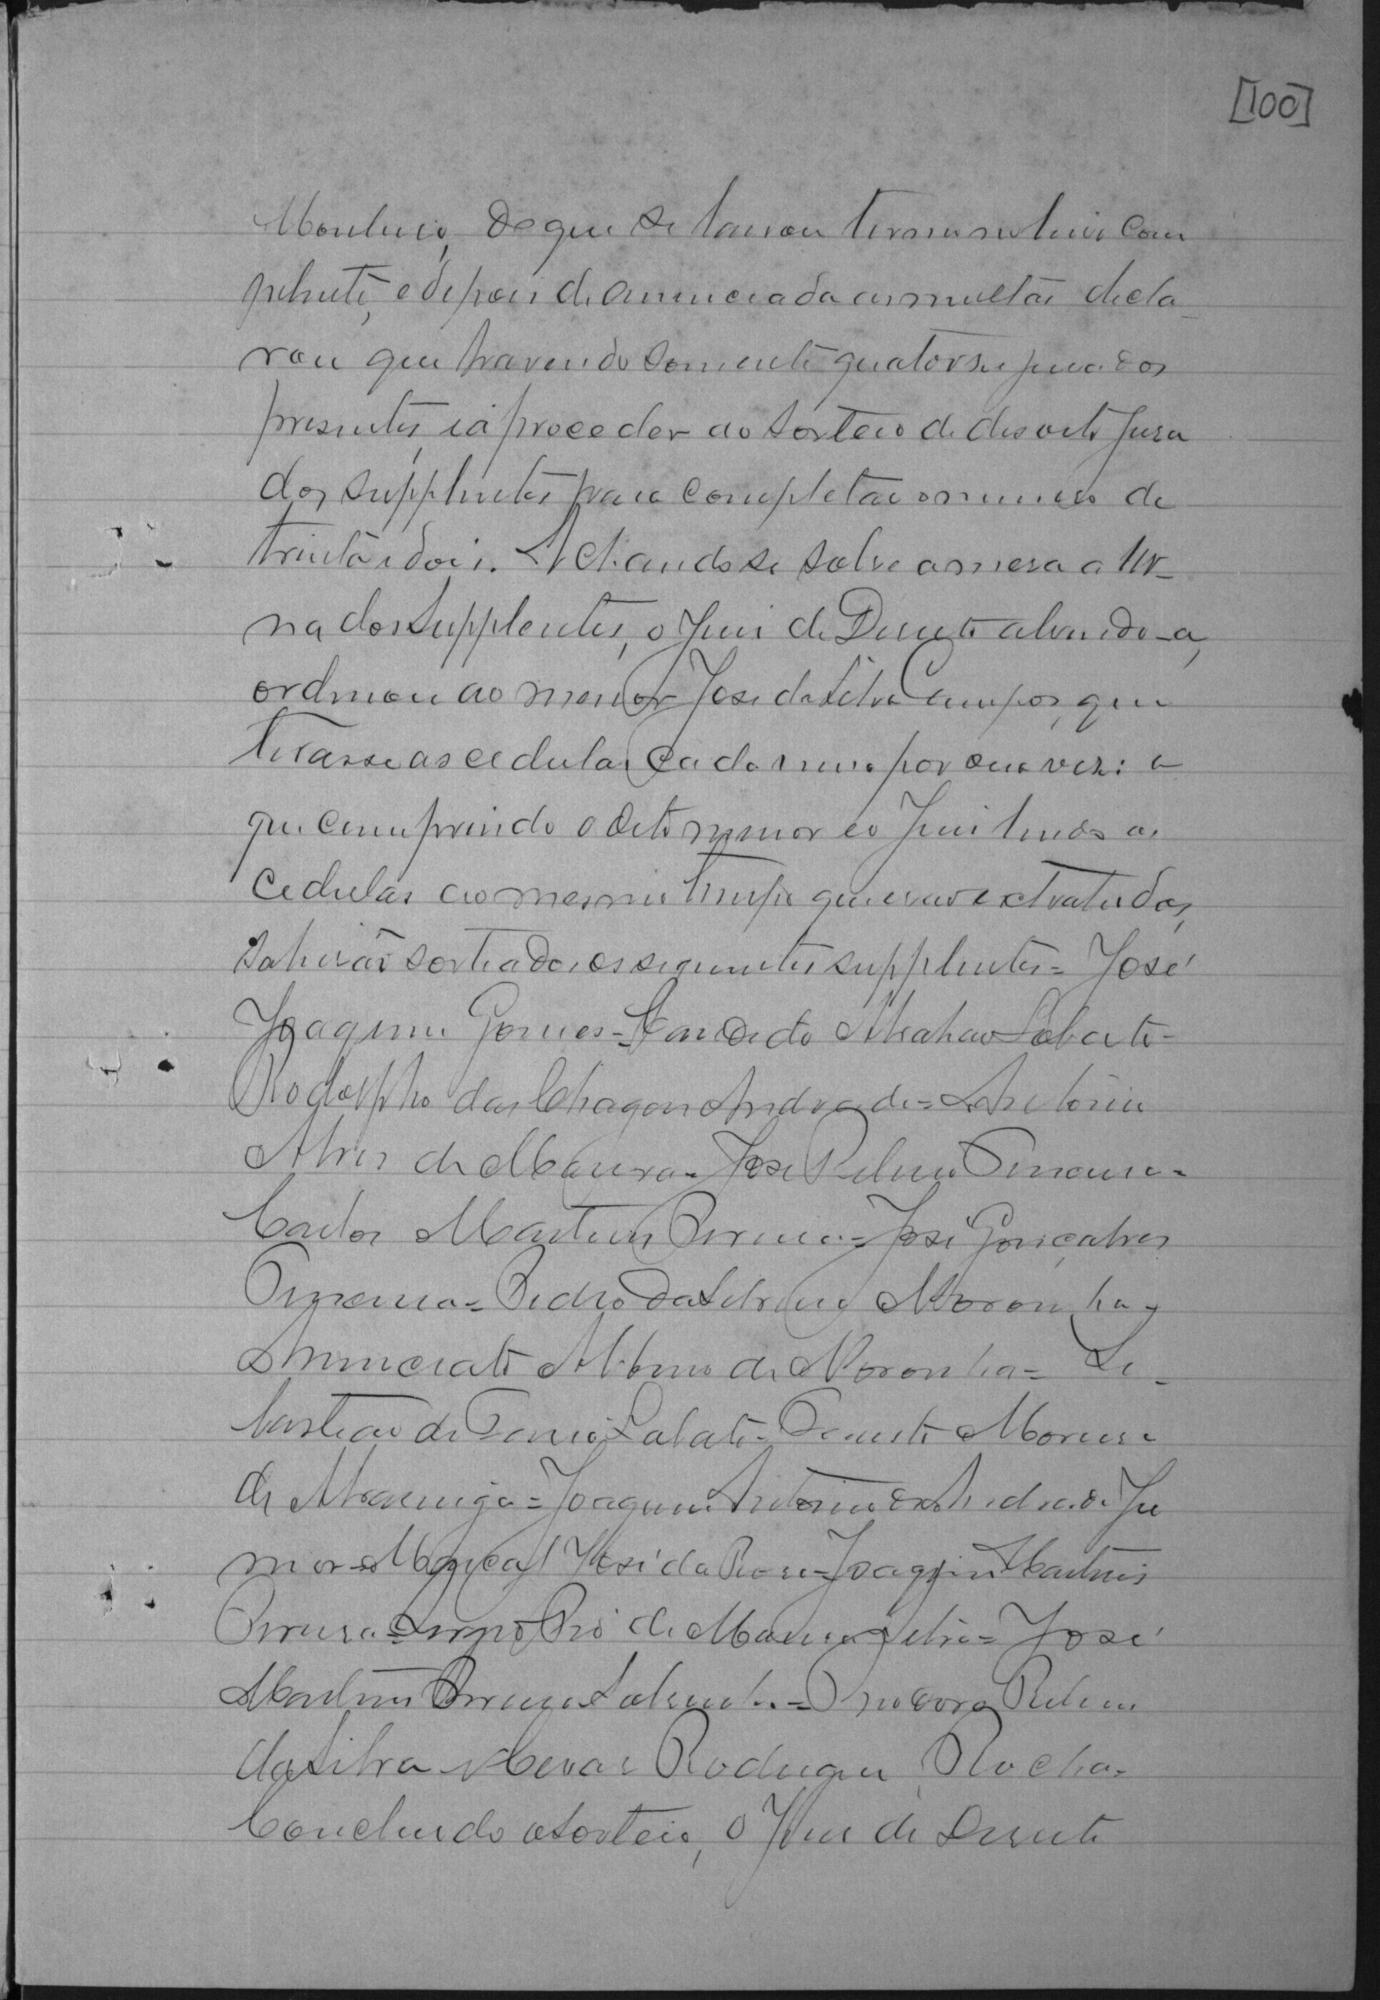 [100]
de que se lavrou termo no livro com
petente, e depois de annunciada as multas decla
rou que havendo somente quatorse jurados
presentes, ia proceder ao sorteio de desoito jura
dos supplentes para completar o numero de
trinta e dois. Achando se sobre a mesa a ur-
na dos supplentes, o Juis de Dereito abrindo-a,
ordenou ao menor José da Silva Campos, que
tirasse as cedulas cada uma por sua vez: o
que cumprindo o dito menor e o Juis lendo as
cedulas ao mesmo tempo que erão extrahidas,
sahirão sorteados os seguintes supplentes = José
Joaquim Gomes = Candido Abrahão Lobato =
Rodolpho das Chagas Andrade = Antonio
Alves de Moura = José Ribeiro Pimenta =
Carlos Martins Pereira = José Gonçalves
Pimenta = Pedro da Noronha =
Albino de Noronha = Se
bastião de Faria Lobato = Fausto Moreira
de = Joaquim Antonio de Andrade Ju
nior = Marçal José da Rosa = Joaquim Martins
Pereira = de Moura Silva = José
Martins Pereira = Ribeiro
da Silva = Rodrigues Rocha =
Concluido o sorteio, o Juis de Dereito